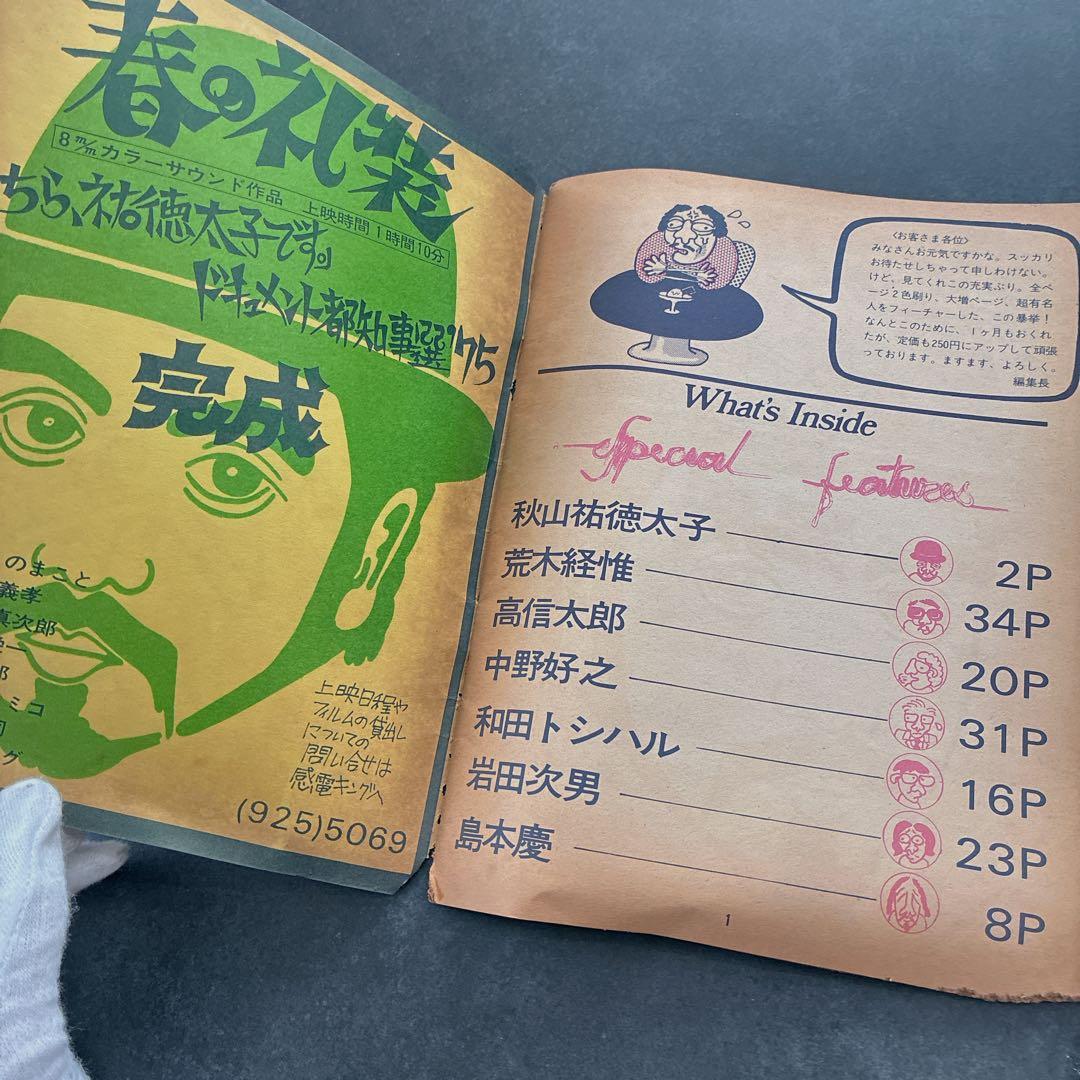 春の礼装
8m/mカラーサウンド作品 上映時間1時間10分
ちら、祐徳太子です。」
ドキュメント都知事選'75
完成
のまこと
義孝
真次郎
一
郎
ミコ
司
グ
上映日程や
フィルムの貸出し
についての
問い合せは
感電キングへ
(925)5069
〈お客さま各位〉
みなさんお元気ですかな。スッカリ
お待たせしちゃって申しわけない。
けど、見てくれこの充実ぶり。全ペ
ージ2色刷り、大増ページ、超有名
人をフィーチャーした、この暴挙!
なんとこのために、1ヶ月もおくれ
たが、定価も250円にアップして頑張
っております。ますます、よろしく。
編集長
What's Inside
Special features
秋山祐徳太子 2P
荒木経惟 34P
高信太郎 20P
中野好之 31P
和田トシハル 16P
岩田次男 23P
島本慶 8P
1